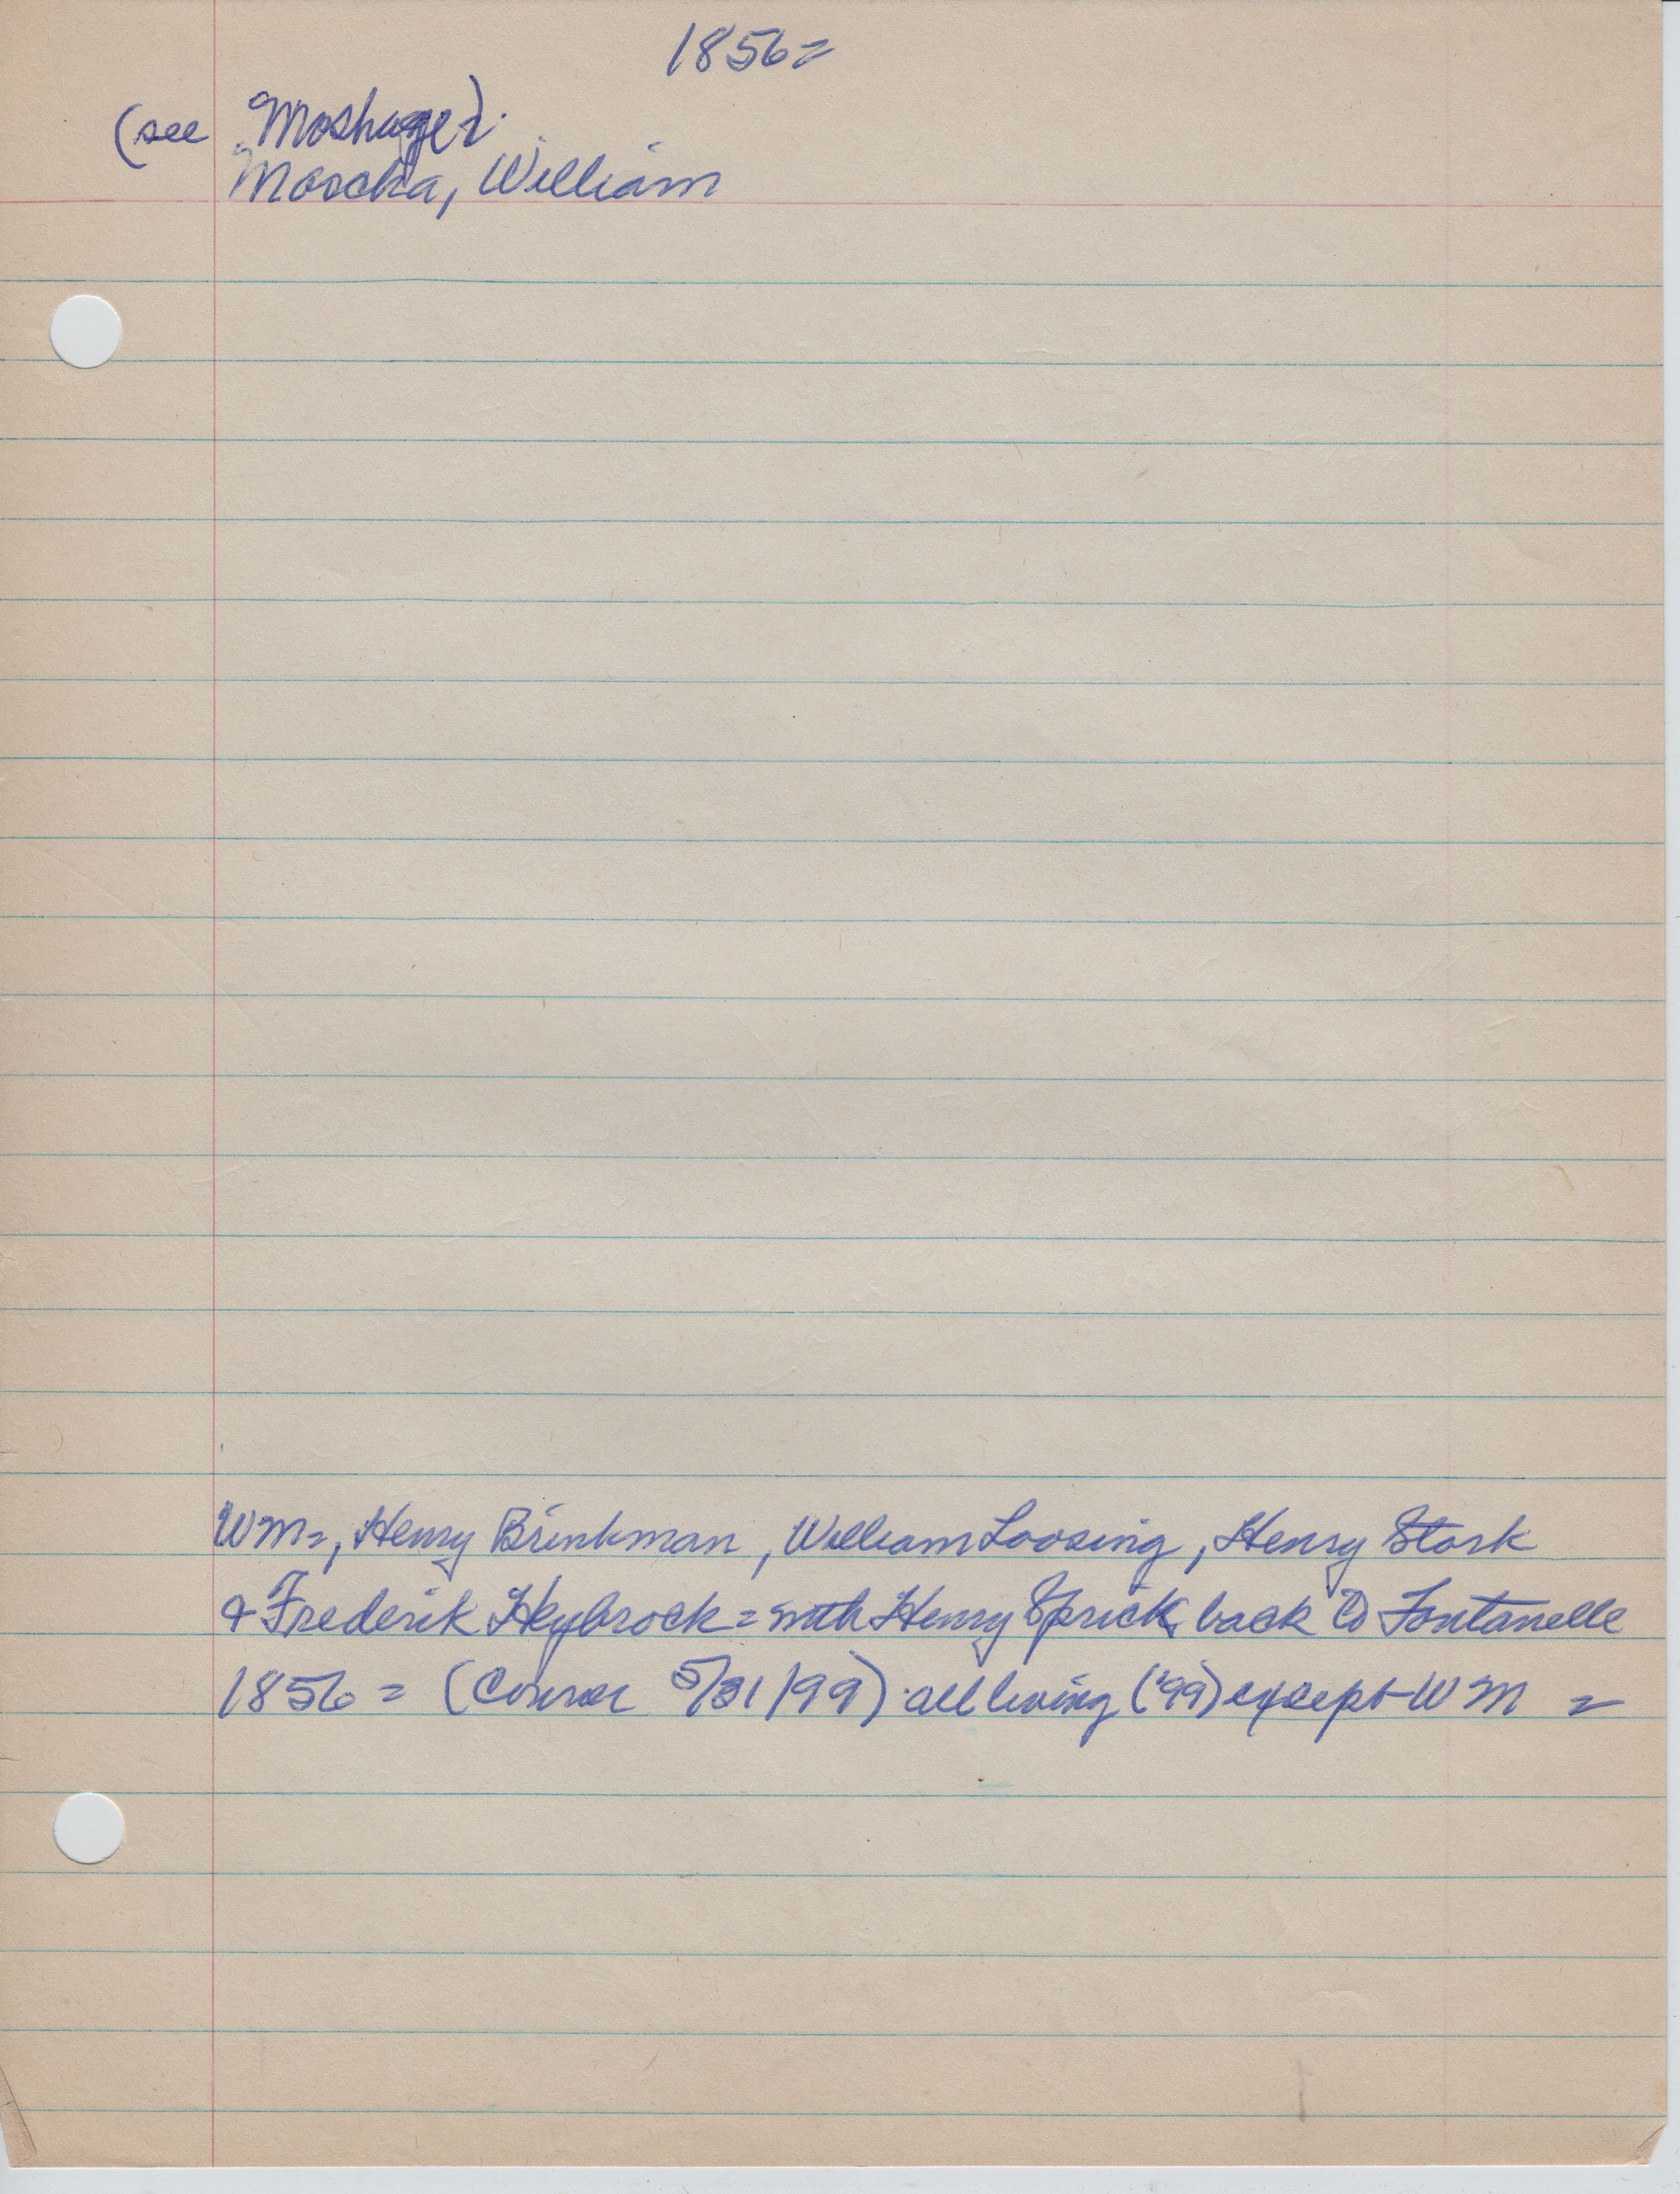 1856=
(see Moshage).
Moscha, William
WM=, Henry Brinkman, William Loosing, Henry Stork
& Frederik Heybrock= with Henry Sprick back to Fontanelle
1856= (Courier 5/31/99) all living ('99) except WM =